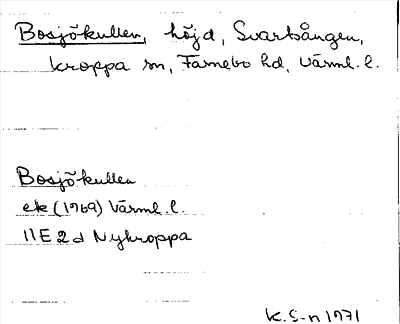 Bosjökullen, höjd, Svartsången,
Kroppa sn, Färnebo hd, Värml. l.
Bosjökullen
ek (1969) Värml. l.
11E 2d Nykroppa
K.S-n 1971